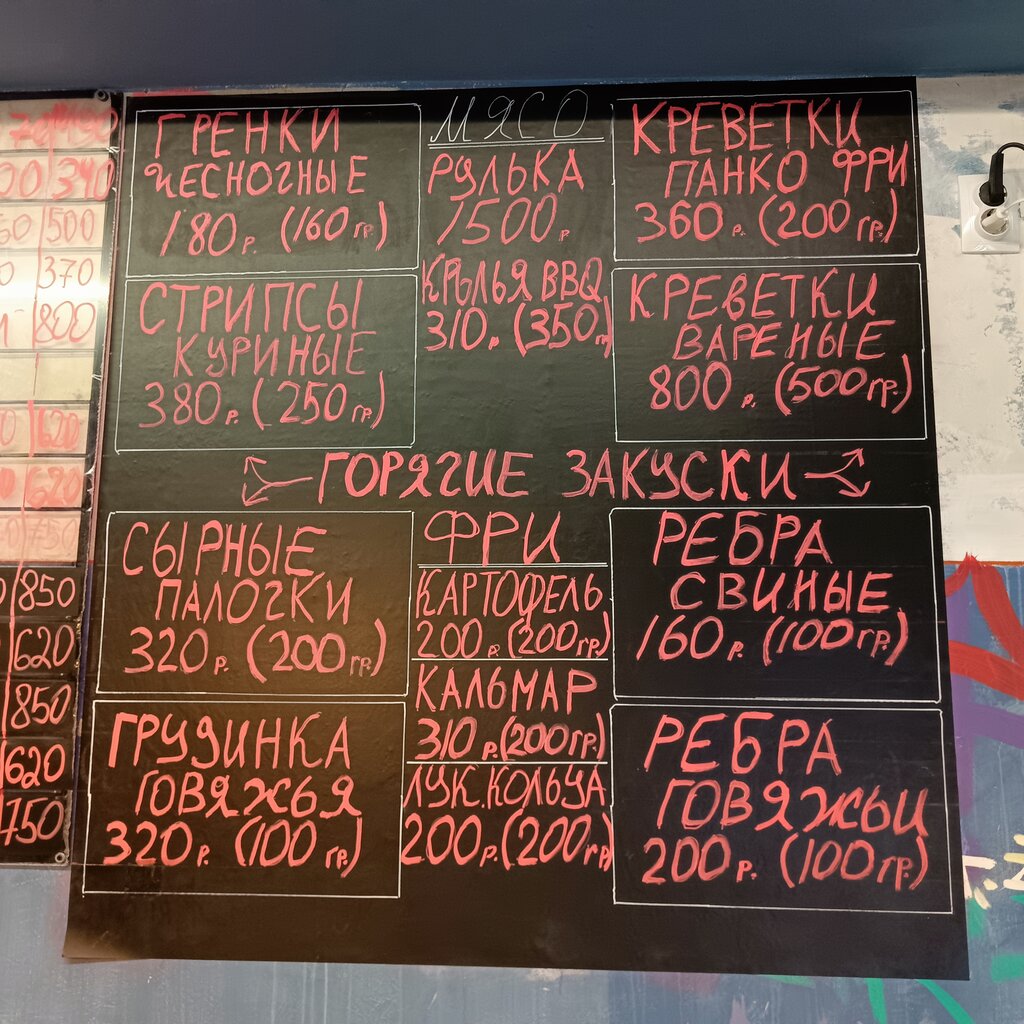 ГРЕНКИ
ЧЕСНОЧНЫЕ
180р. (160гр.)
СТРИПСЫ
КУРИНЫЕ
380р. (250гр.)
МЯСО
РУЛЬКА
1500р
КРЫЛЬЯ BBQ
310р. (350г)
КРЕВЕТКИ
ПАНКО ФРИ
360р. (200гр.)
КРЕВЕТКИ
ВАРЕНЫЕ
800р. (500гр.)
ГОРЯЧИЕ ЗАКУСКИ
СЫРНЫЕ
ПАЛОЧКИ
320р. (200гр.)
ГРУДИНКА
ГОВЯЖЬЯ
320р. (100гр.)
ФРИ
КАРТОФЕЛЬ
200р. (200гр.)
КАЛЬМАР
310р. (200гр.)
ЛУК.КОЛЬЦА
200р. (200гр)
РЕБРА
СВИНЫЕ
160р. (100гр.)
РЕБРА
ГОВЯЖЬИ
200р. (100гр.)
340
500
370
800
620
620
750
850
620
850
620
750